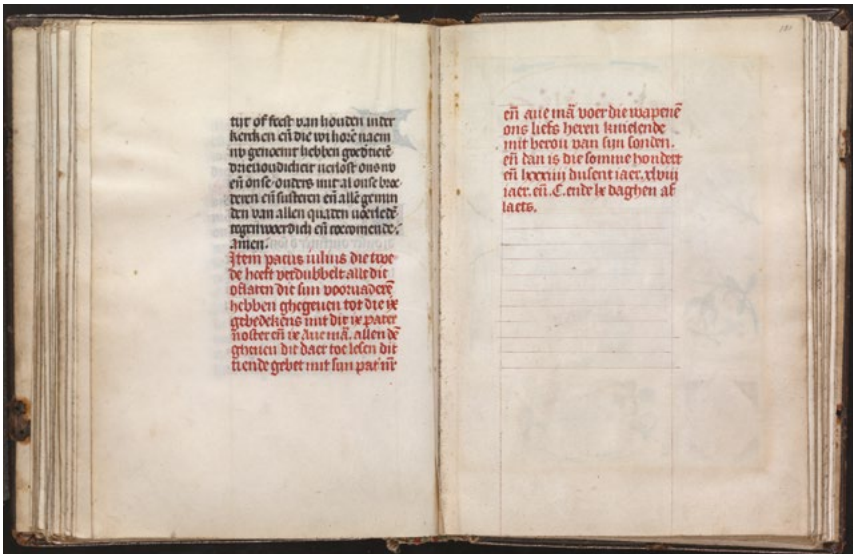 tijt of feest van houden inder
kerken en̄ die wi horē naem
nv genoemt hebben goedertierē
drieuoudicheit verlost ons nv
en̄ onse ouders mit al onse broe
deren en̄ susteren en̄ allē gemin
den van allen quaden voerledē
tegenwoerdich en̄ toecomende.
amen.
Item paeus iulius die twe
de heeft verdubbelt alle dit
oflaten die sijn vooruaderē
hebben ghegeuen tot die ix
gebedekens mit dit ix pater
noster en̄ ix Aue mā. allen dē
ghenen dit daer toe lesen dit
tiende gebet mit sijn pat' nr̄
181
en̄ aue mā voer die wapenē
ons liefs heren knielende
mit berou van sijn sonden.
en̄ dan is die somme hondert
en̄ lxxxiii dusent iaer. xlviii
iaer. en̄ .C. ende lx daghen af
laets.